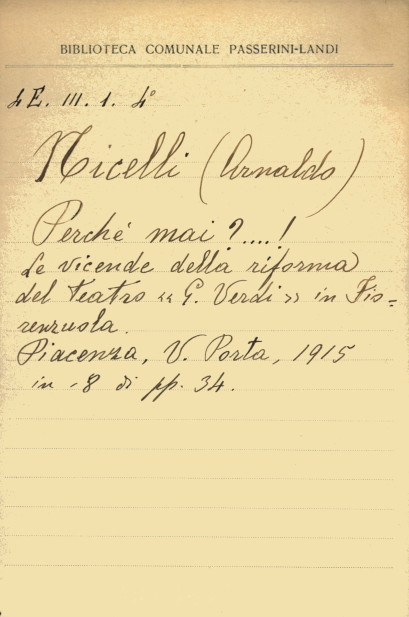 BIBLIOTECA COMUNALE PASSERINI-LANDI
4E. III. 1. 4°
Nicelli (Arnaldo)
Perché mai ?....!
Le vicende della riforma
del Teatro « G. Verdi » in Fio=
renzuola.
Piacenza, V. Porta, 1915
in -8 di pp. 34.